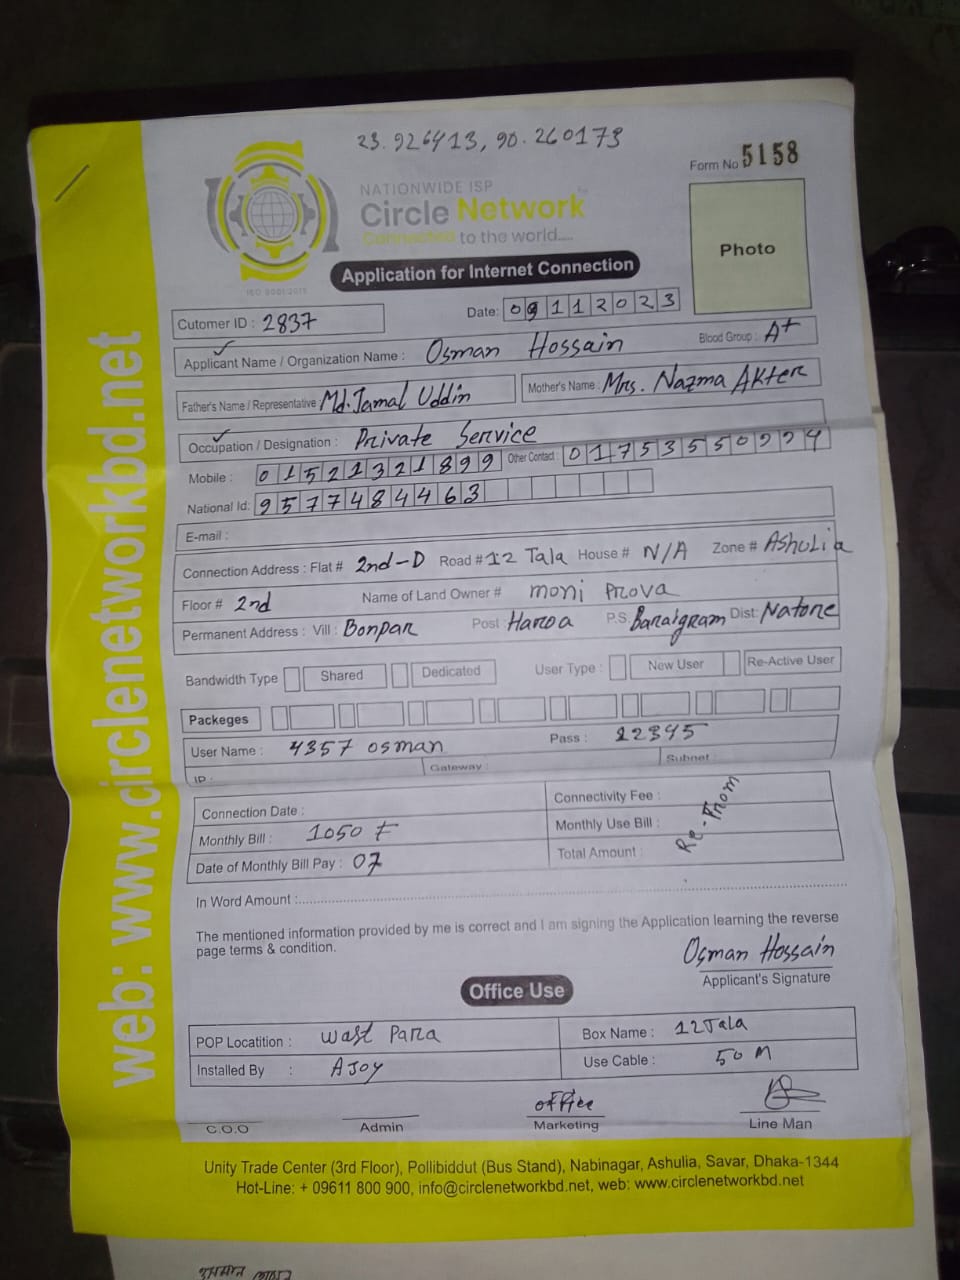 23.926413, 90.260173
Form No 5158
NATIONWIDE ISP
Circle Network
Connected to the world.....
ISO 9001:2015
Photo
Application for Internet Connection
Cutomer ID : 2837
Date: 09112023
Applicant Name / Organization Name : Osman Hossain Blood Group : A+
Father's Name / Representative : Md. Jamal Uddin Mother's Name : Mrs. Nazma Akter
Occupation / Designation : Private Service
Mobile : 01521321899 Other Contact :
National Id: 9577484463
E-mail :
Connection Address : Flat # 2nd-D Road # 12 Tala House # N/A Zone # Ashulia
Floor # 2nd Name of Land Owner # moni Prova
Permanent Address : Vill : Bonpar Post Haroa P.S. Baraigram Dist: Natore
Bandwidth Type Shared Dedicated User Type : New User Re-Active User
Packeges
User Name : 4357 osman Pass : 12345
IP : Gateway : Subnet :
Connection Date : Connectivity Fee :
Monthly Bill : 1050 Monthly Use Bill :
Date of Monthly Bill Pay : 07 Total Amount :
Re-From
In Word Amount :
The mentioned information provided by me is correct and I am signing the Application learning the reverse
page terms & condition.
Osman Hossain
Applicant's Signature
Office Use
POP Locatition : wast Para Box Name : 12Tala
Installed By : AJoy Use Cable : 50 M
office
C.O.O Admin Marketing Line Man
Unity Trade Center (3rd Floor), Pollibiddut (Bus Stand), Nabinagar, Ashulia, Savar, Dhaka-1344
Hot-Line: + 09611 800 900, info@circlenetworkbd.net, web: www.circlenetworkbd.net
web: www.circlenetworkbd.net